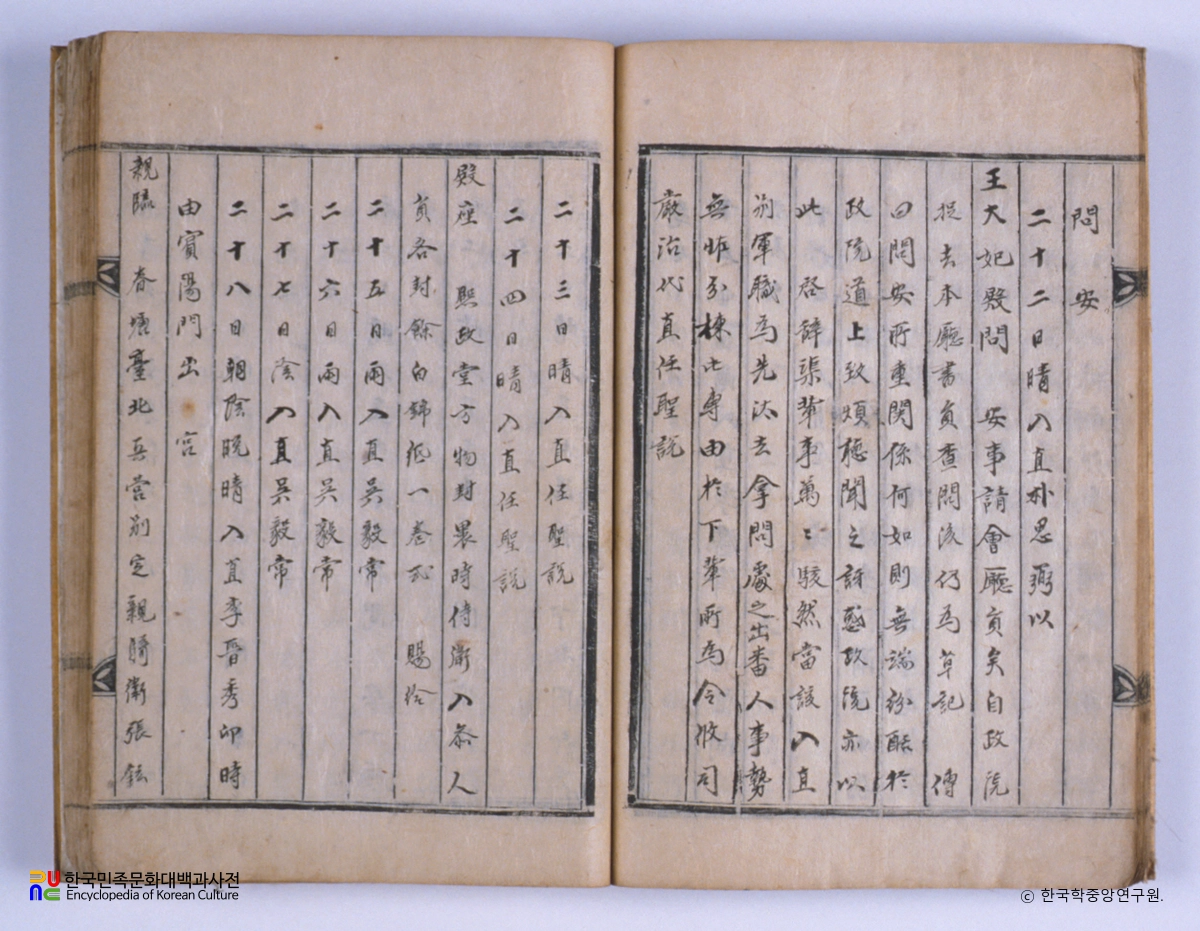 問安
二十二日晴入直朴思弼以
王大妃殿問 安事請會廳員矣自政院
捉去本廳書員查問後仍爲草記 傳
曰問安所重関係何如則無端紛酗於
政院道上致煩聽聞之訝惑政院亦以
此 啓辞渠輩事萬〻駭然當該入直
別軍職爲先汰去拿問處之出番人事勢
無怍分揀此專由於下輩所爲令攸司
嚴治代直任聖說
二十三日晴入直任聖說
二十四日晴入直任聖說
殿座 熙政堂方物封裹時侍衛入叅人
員各封餘白錦紙一卷式 賜給
二十五日雨入直吳毅常
二十六日雨入直吳毅常
二十七日陰入直吳毅常
二十八日朝陰晩晴入直李晋秀卯時
由賓陽門出 宮
親臨 春塘臺北兵營別定親騎衛張鉉
한국민족문화대백과사전
Encyclopedia of Korean Culture
ⓒ 한국학중앙연구원.